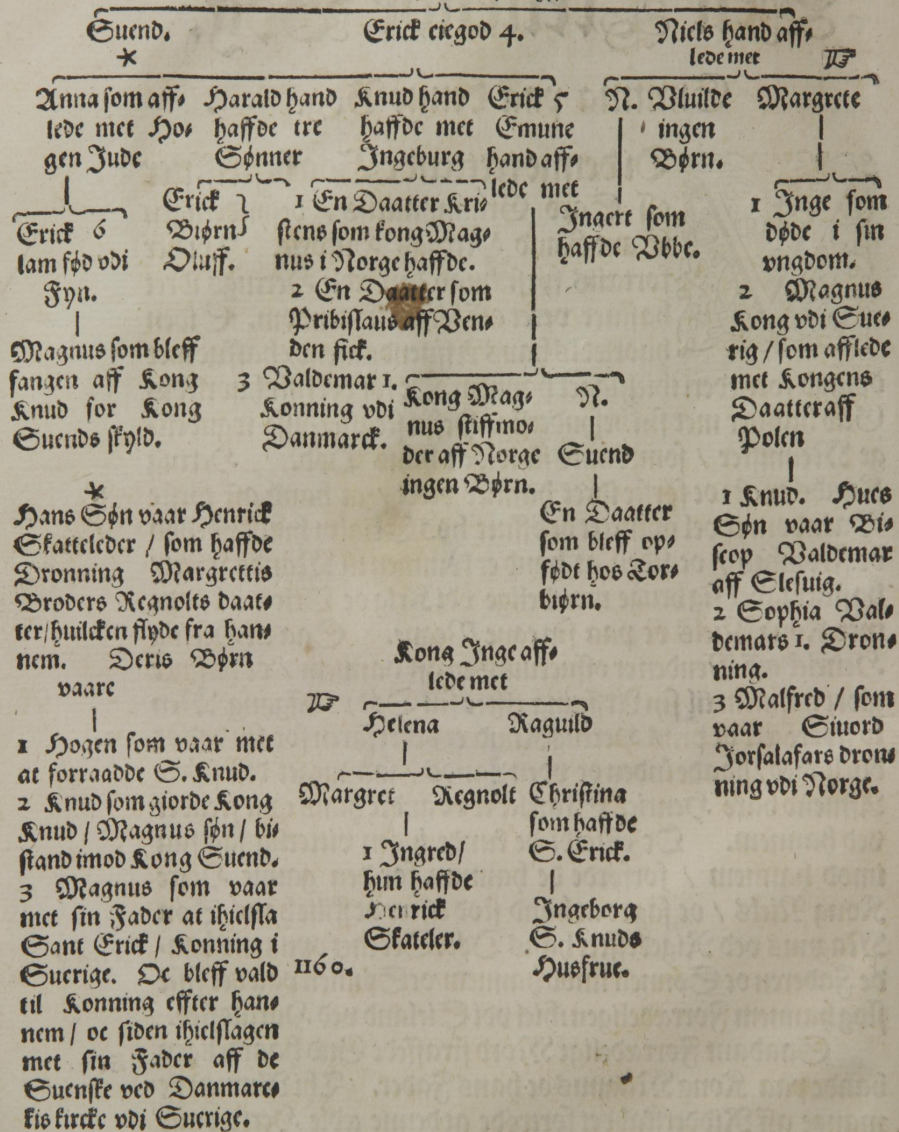 Suend.
Erick eiegod 4.
Niels hand aff⸗
lede met
Anna som aff⸗
lede met Ho⸗
gen Jude
Harald hand
haffde tre
Sønner
Knud hand
haffde met
Ingeburg
Erick 5
Emune
hand aff⸗
lede met
N. Vluilde
ingen
Børn.
Margrete
Erick 6
lam fød vdi
Fyn.
Magnus som bleff
fangen aff Kong
Knud for Kong
Suends skyld.
Erick
Biørn
Oluff.
1 En Daatter Kri⸗
stens som kong Mag⸗
nus i Norge haffde.
2 En Daatter som
Pribislaus aff Ven⸗
den fick.
3 Valdemar 1.
Konning vdi
Danmarck.
Kong Mag⸗
nus stiffmo⸗
der aff Norge
ingen Børn.
N.
Suend
En Daatter
som bleff op⸗
født hos Tor⸗
biørn.
Ingert som
haffde Vbbe.
1 Inge som
døde i sin
vngdom.
2 Magnus
Kong vdi Sue⸗
rig / som afflede
met Kongens
Daatter aff
Polen
1 Knud. Hues
Søn vaar Bi⸗
scop Valdemar
aff Slesuig.
2 Sophia Val⸗
demars 1. Dron⸗
ning.
3 Malfred / som
vaar Siuord
Jorsalafars dron⸗
ning vdi Norge.
Hans Søn vaar Henrick
Skatteleder / som haffde
Dronning Margrettis
Broders Regnolts daat⸗
ter / huilcken flyde fra han⸗
nem. Deris Børn
vaare
1 Hogen som vaar met
at forraadde S. Knud.
2 Knud som giorde Kong
Knud / Magnus søn / bi⸗
stand imod Kong Suend.
3 Magnus som vaar
met sin Fader at ihielsla
Sant Erick / Konning i
Suerige. Oc bleff vald
til Konning effter han⸗
nem / oc siden ihielslagen
met sin Fader aff de
Suenske ved Danmarc⸗
kis kircke vdi Suerige.
Kong Inge aff⸗
lede met
Helena
Raguild
Margret
Regnolt
Christina
som haffde
S. Erick.
1 Ingred /
hun haffde
Henrick
Skateler.
Ingeborg
S. Knuds
Husfrue.
1160.